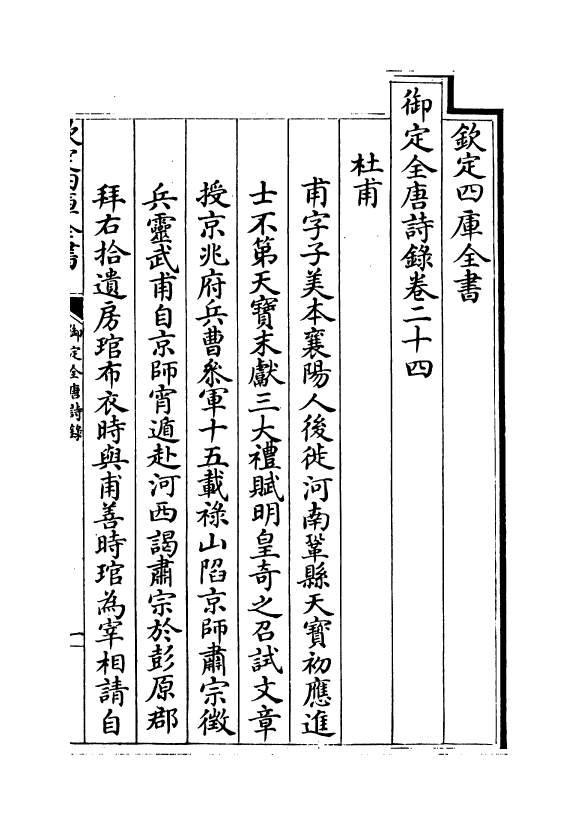 欽定四庫全書
御定全唐詩錄卷二十四
杜甫
甫字子美本襄陽人後徙河南鞏縣天寶初應進
士不第天寶末獻三大禮賦明皇奇之召試文章
授京兆府兵曹叅軍十五載祿山陷京師肅宗徵
兵靈武甫自京師宵遁赴河西謁肅宗於彭原郡
拜右拾遺房琯布衣時與甫善時琯為宰相請自
欽定四庫全書
御定全唐詩錄
一